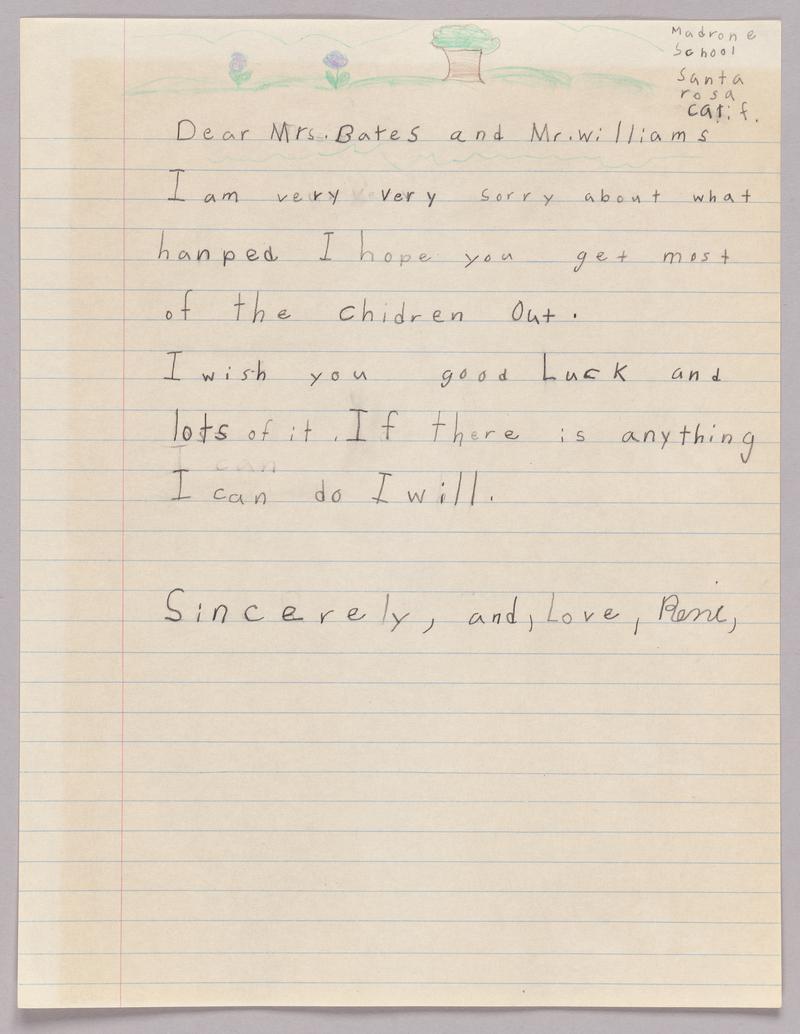 Madrone
School
Santa
rosa
Calif.
Dear Mrs. Bates and Mr. williams
I am very very sorry about what
hanped I hope you get most
of the chidren Out.
I wish you good Luck and
lots of it. If there is anything
I can do I will.
Sincerely, and, Love, René,